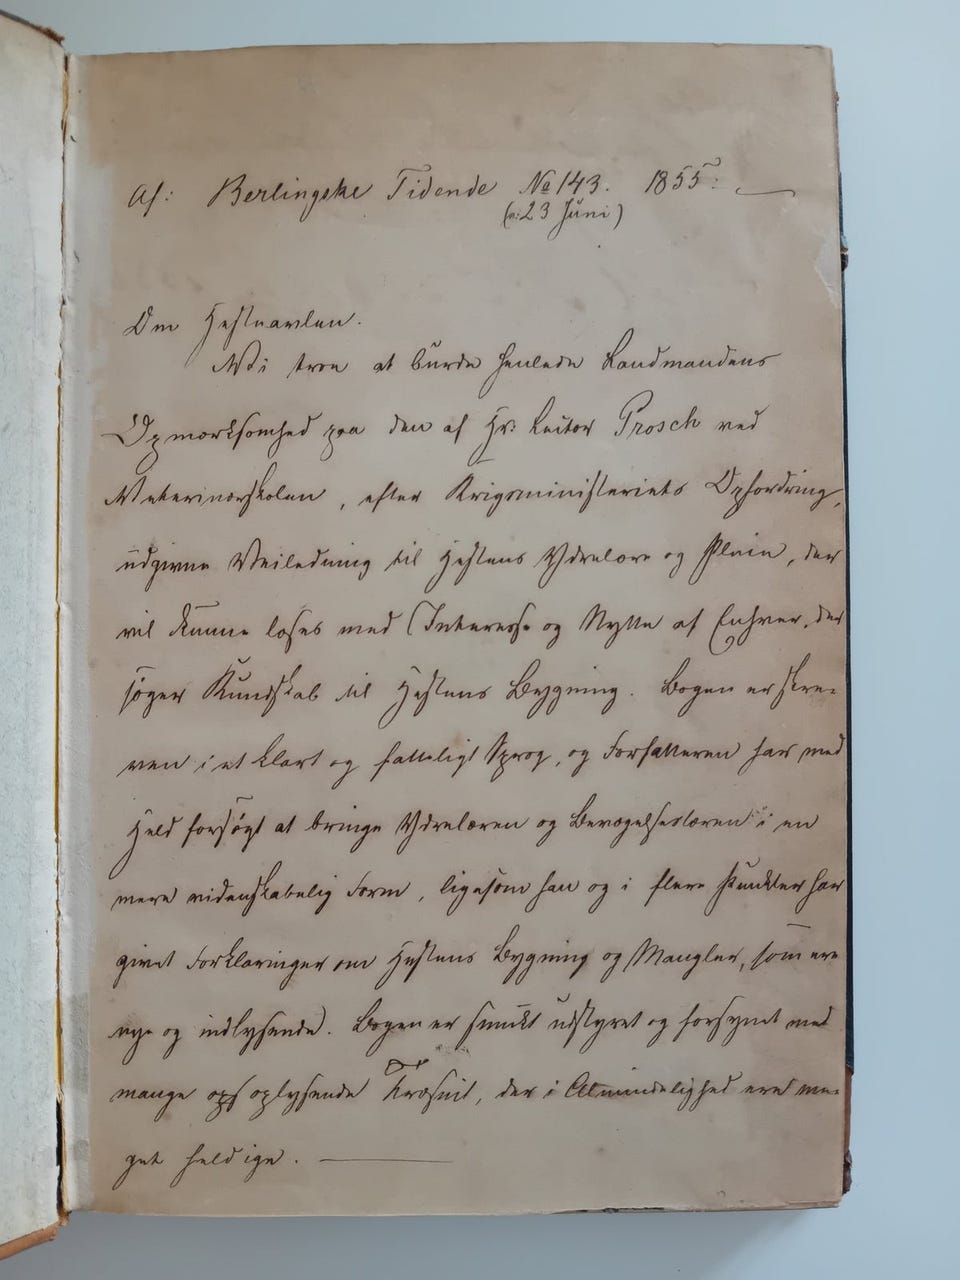 Af: Berlingske Tidende No 143. 1855:
(:23 Juni)
Om Hesteavlen.
Vi troe at burde henlede Landmandens
Opmærksomhed paa den af Hr: Lector Prosch ved
Veterinærskolen, efter Krigsministeriets Opfordring,
udgivne Veiledning til Hestens Ydrelære og Pleie, der
vil kunne læses med Interesse og Nytte af Enhver, der
søger Kundskab til Hestens Bygning. Bogen er skre-
ven i et klart og fatteligt Sprog, og Forfatteren har med
Held forsøgt at bringe Ydrelæren og Bevægelseslæren i en
mere videnskabelig Form, ligesom han og i flere Punkter har
givet Forklaringer om Hestens Bygning og Mangler, som ere
nye og indlysende. Bogen er smukt udstyret og forsynet med
mange oplysende Træsnit, der i Almindelighed ere me-
get heldige.